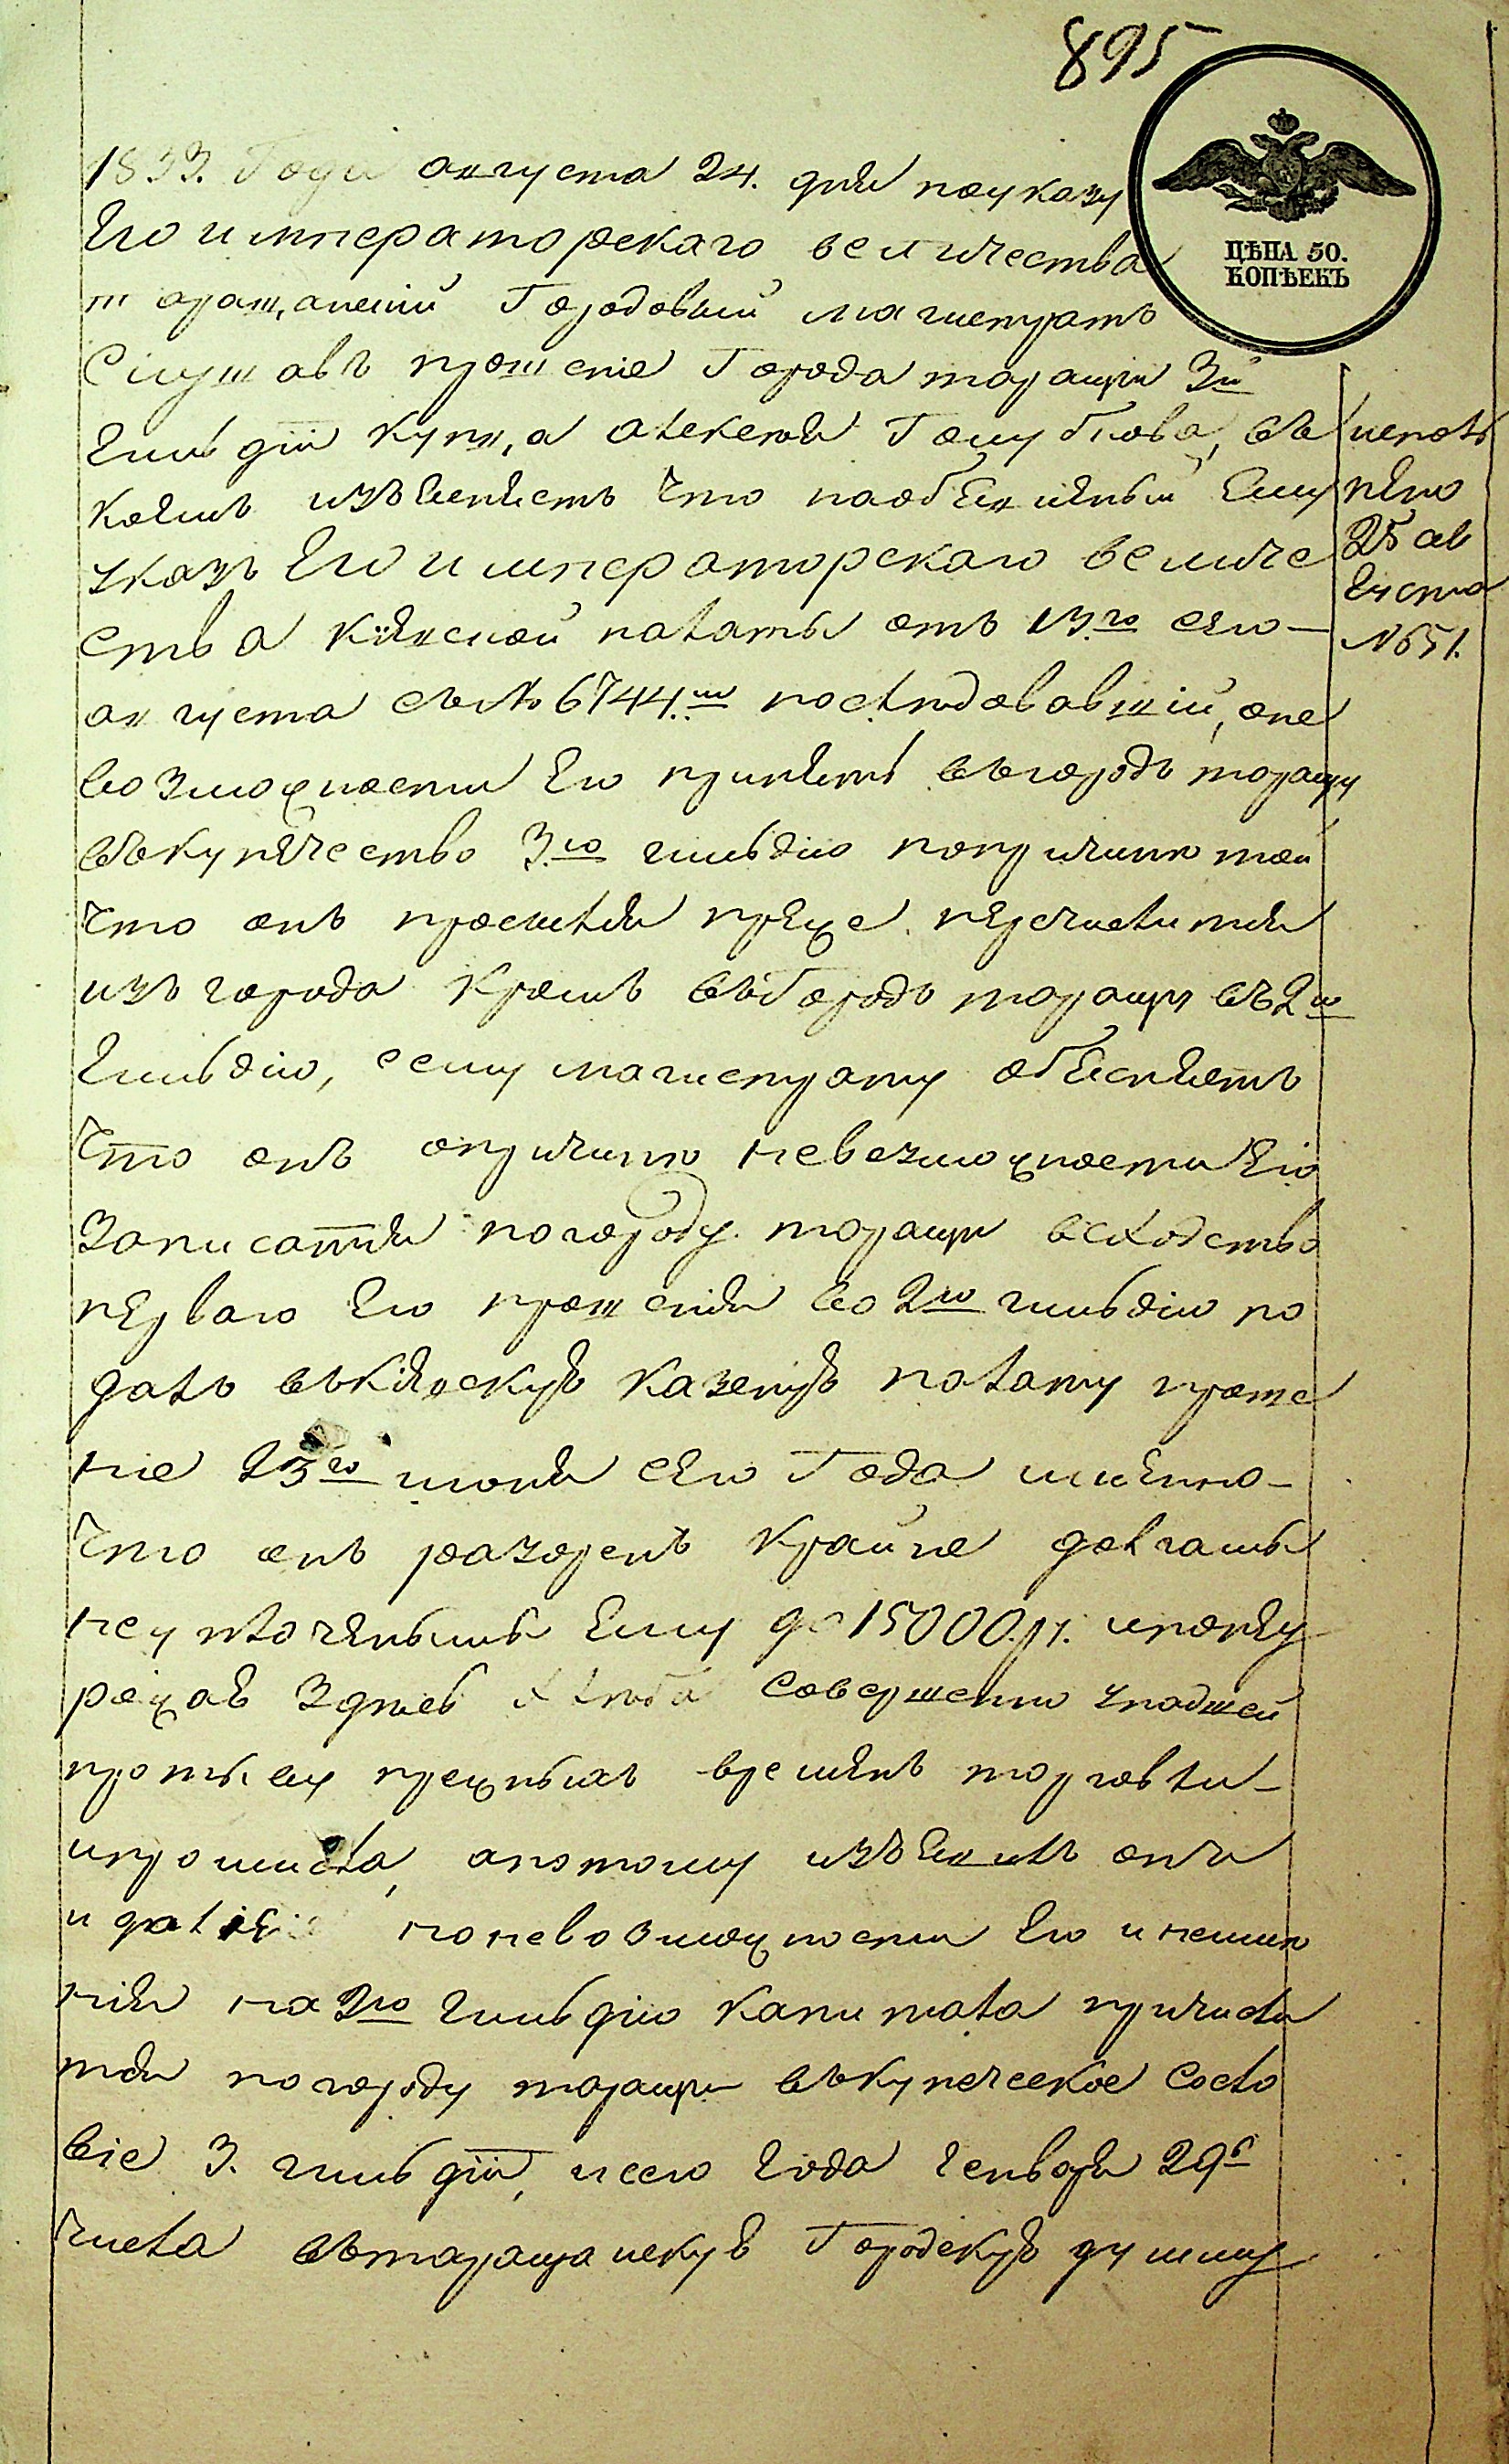 895
ЦѢНА 50.
КОПѢЕКЪ
1833. Года августа 24. дня поуказу
Его императорскаго величества
таращанскій Городовый магистратъ
Слушавъ прошеніе Города таращи 3й
гильдіи купца алексея Голубкова, въ
коемъ изъясняетъ что наобъявленый ему
указъ Его императорскаго величе
ства кіевской палаты отъ 13го сего
августа съ№ 6744мъ последовавшій, оне
возможности Его принять въгородъ таращу
въкупечество 3ю гильдію попричине той
что онъ просился преже перечислится
изъ города въГородъ таращу въ2ю
гильдію, сему магистрату объясняетъ
что онъ опричине невозможности Его
записатся погороду таращи вследство
перваго Его прошенія во 2ю гильдію по
далъ въкіевскую казеную палату проше
ніе 23го июня сего Года имено
что онъ разоренъ крайне долгами
неуплочеными Ему до 15000.р.
совершено упадшей
прежныхъ времянъ торговли
ипромисла, апотому изъявилъ онъ
и поневозможности Его инеиме
нія на 2ю гильдію капитала причисли
тся погороду таращи въкупеческое Сосло
віе 3. гильдіи, исего Года генваря 29е
числа вътаращанскую Городскую думу
исполн
нено
25 ав
густа
№651.